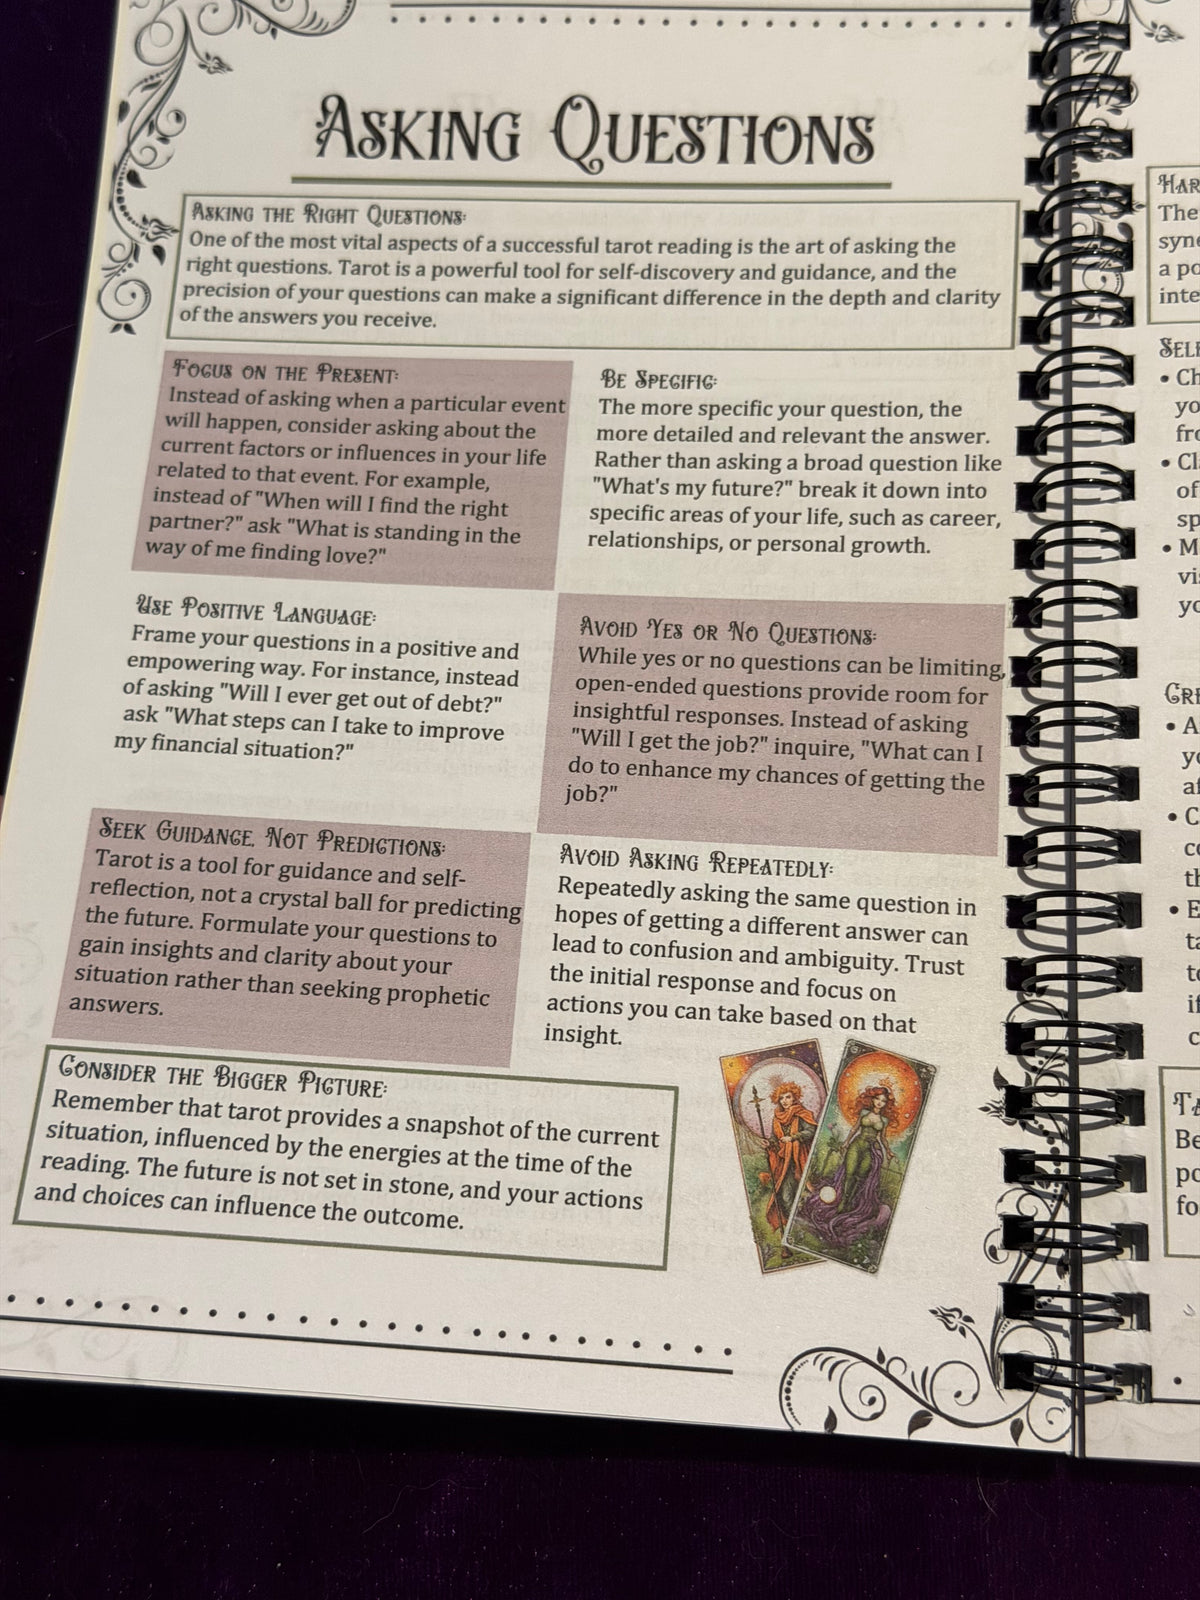 Asking Questions
Asking the Right Questions:
One of the most vital aspects of a successful tarot reading is the art of asking the
right questions. Tarot is a powerful tool for self-discovery and guidance, and the
precision of your questions can make a significant difference in the depth and clarity
of the answers you receive.
Focus on the Present:
Instead of asking when a particular event
will happen, consider asking about the
current factors or influences in your life
related to that event. For example,
instead of "When will I find the right
partner?" ask "What is standing in the
way of me finding love?"
Be Specific:
The more specific your question, the
more detailed and relevant the answer.
Rather than asking a broad question like
"What's my future?" break it down into
specific areas of your life, such as career,
relationships, or personal growth.
Use Positive Language:
Frame your questions in a positive and
empowering way. For instance, instead
of asking "Will I ever get out of debt?"
ask "What steps can I take to improve
my financial situation?"
Avoid Yes or No Questions:
While yes or no questions can be limiting,
open-ended questions provide room for
insightful responses. Instead of asking
"Will I get the job?" inquire, "What can I
do to enhance my chances of getting the
job?"
Seek Guidance, Not Predictions:
Tarot is a tool for guidance and self-
reflection, not a crystal ball for predicting
the future. Formulate your questions to
gain insights and clarity about your
situation rather than seeking prophetic
answers.
Avoid Asking Repeatedly:
Repeatedly asking the same question in
hopes of getting a different answer can
lead to confusion and ambiguity. Trust
the initial response and focus on
actions you can take based on that
insight.
Consider the Bigger Picture:
Remember that tarot provides a snapshot of the current
situation, influenced by the energies at the time of the
reading. The future is not set in stone, and your actions
and choices can influence the outcome.
The
a po
Be